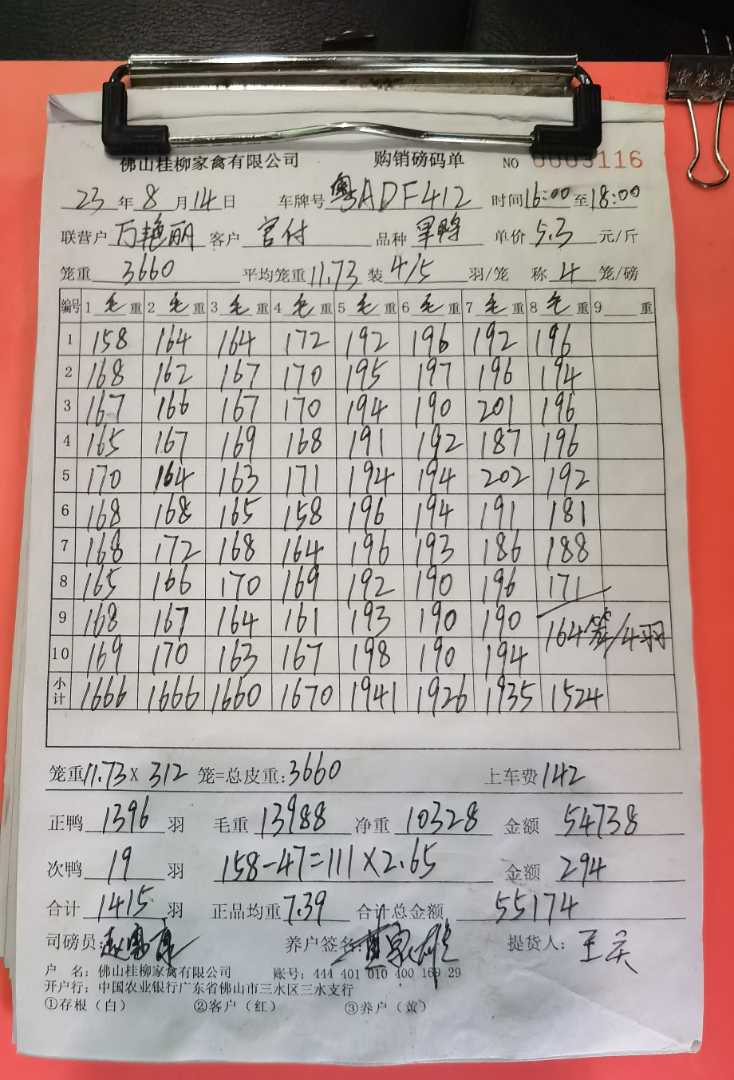 佛山桂柳家禽有限公司 购销磅码单 NO 0003116
23年8月14日 车牌号粤ADF412 时间16:00至18:00
联营户万艳丽 客户官付 品种旱鸭 单价5.3元/斤
笼重3660 平均笼重11.73装4/5羽/笼 称4笼/磅
编号 1毛重 2毛重 3毛重 4毛重 5毛重 6毛重 7毛重 8毛重 9重
1 158 164 164 172 192 196 192 196
2 168 162 167 170 195 197 196 194
3 167 166 167 170 194 190 201 196
4 165 167 169 168 191 192 187 196
5 170 164 163 171 194 194 202 192
6 168 168 165 158 196 194 191 181
7 168 172 168 164 196 193 186 188
8 165 166 170 169 192 190 196 171
9 168 167 164 161 193 190 190 164笼/4羽
10 169 170 163 167 198 190 194
小计 1666 1666 1660 1670 1941 1926 1935 1524
笼重11.73×312笼=总皮重:3660 上车费142
正鸭1396羽 毛重13988 净重10328 金额54738
次鸭19羽 158-47=111×2.65 金额294
合计1415羽 正品均重7.39 合计总金额55174
司磅员: 养户签名: 提货人:王庆
户 名:佛山桂柳家禽有限公司 账号:444 401 010 400 169 29
开户行:中国农业银行广东省佛山市三水区三水支行
①存根(白) ②客户(红) ③养户(黄)